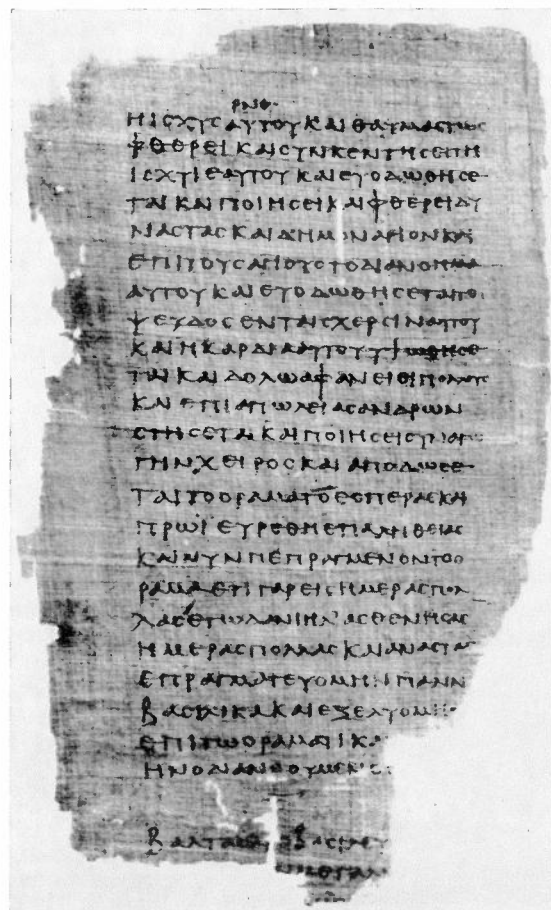 ΡΝΘ
ΗΙϹΧΥϹΑΥΤΟΥΚΑΙΘΑΥΜΑϹΤΩϹ
ΦΘΕΡΕΙΚΑΙϹΥΝΚΕΝΤΗϹΕΙΤΗ
ΙϹΧΥΙΕΑΥΤΟΥΚΑΙΕΥΟΔΩΘΗϹΕ
ΤΑΙΚΑΙΠΟΙΗϹΕΙΚΑΙΦΘΕΡΕΙΔΥ
ΝΑϹΤΑϹΚΑΙΔΗΜΟΝΑΓΙΟΝΚΑΙ
ΕΠΙΤΟΥϹΑΓΙΟΥϹΤΟΔΙΑΝΟΗΜΑ
ΑΥΤΟΥΚΑΙΕΥΟΔΩΘΗϹΕΤΑΙΤΟ
ΨΕΥΔΟϹΕΝΤΑΙϹΧΕΡϹΙΝΑΥΤΟΥ
ΚΑΙΗΚΑΡΔΙΑΑΥΤΟΥΥΨΩΘΗϹΕ
ΤΑΙΚΑΙΔΟΛΩΑΦΑΝΕΙΘΙΠΟΛΛΟΥ
ΚΑΙΕΠΙΑΠΩΛΕΙΑϹΑΝΔΡΩΝ
ϹΤΗϹΕΤΑΙΚΑΙΠΟΙΗϹΕΙϹΥΝΑΓ
ΓΗΝΧΕΙΡΟϹΚΑΙΑΠΟΔΩϹΕ
ΤΑΙΤΟΟΡΑΜΑΤΟΕϹΠΕΡΑϹΚΑΙ
ΠΡΩΙΕΥΡΕΘΗΕΠΑΛΗΘΕΙΑϹ
ΚΑΙΝΥΝΠΕΠΡΑΓΜΕΝΟΝΤΟΟ
ΡΑΜΑΕΤΙΓΑΡΕΙϹΗΜΕΡΑϹΠΟΛ
ΛΑϹΕΓΩΔΑΝΙΗΛΑϹΘΕΝΗϹΑϹ
ΗΜΕΡΑϹΠΟΛΛΑϹΚΑΙΑΝΑϹΤΑϹ
ΕΠΡΑΓΜΑΤΕΥΟΜΗΝΠΑΛΙΝ
ΒΑϹΙΛΙΚΑΚΑΙΕΞΕΛΥΟΜΗΝ
ΕΠΙΤΩΟΡΑΜΑΤΙΚΑ
ΗΝΟΔΙΑΝΟΟΥΜΕΝΟϹ
ΒΑΛΤΑϹΑΡ ΒΑϹΙΛΕΥ